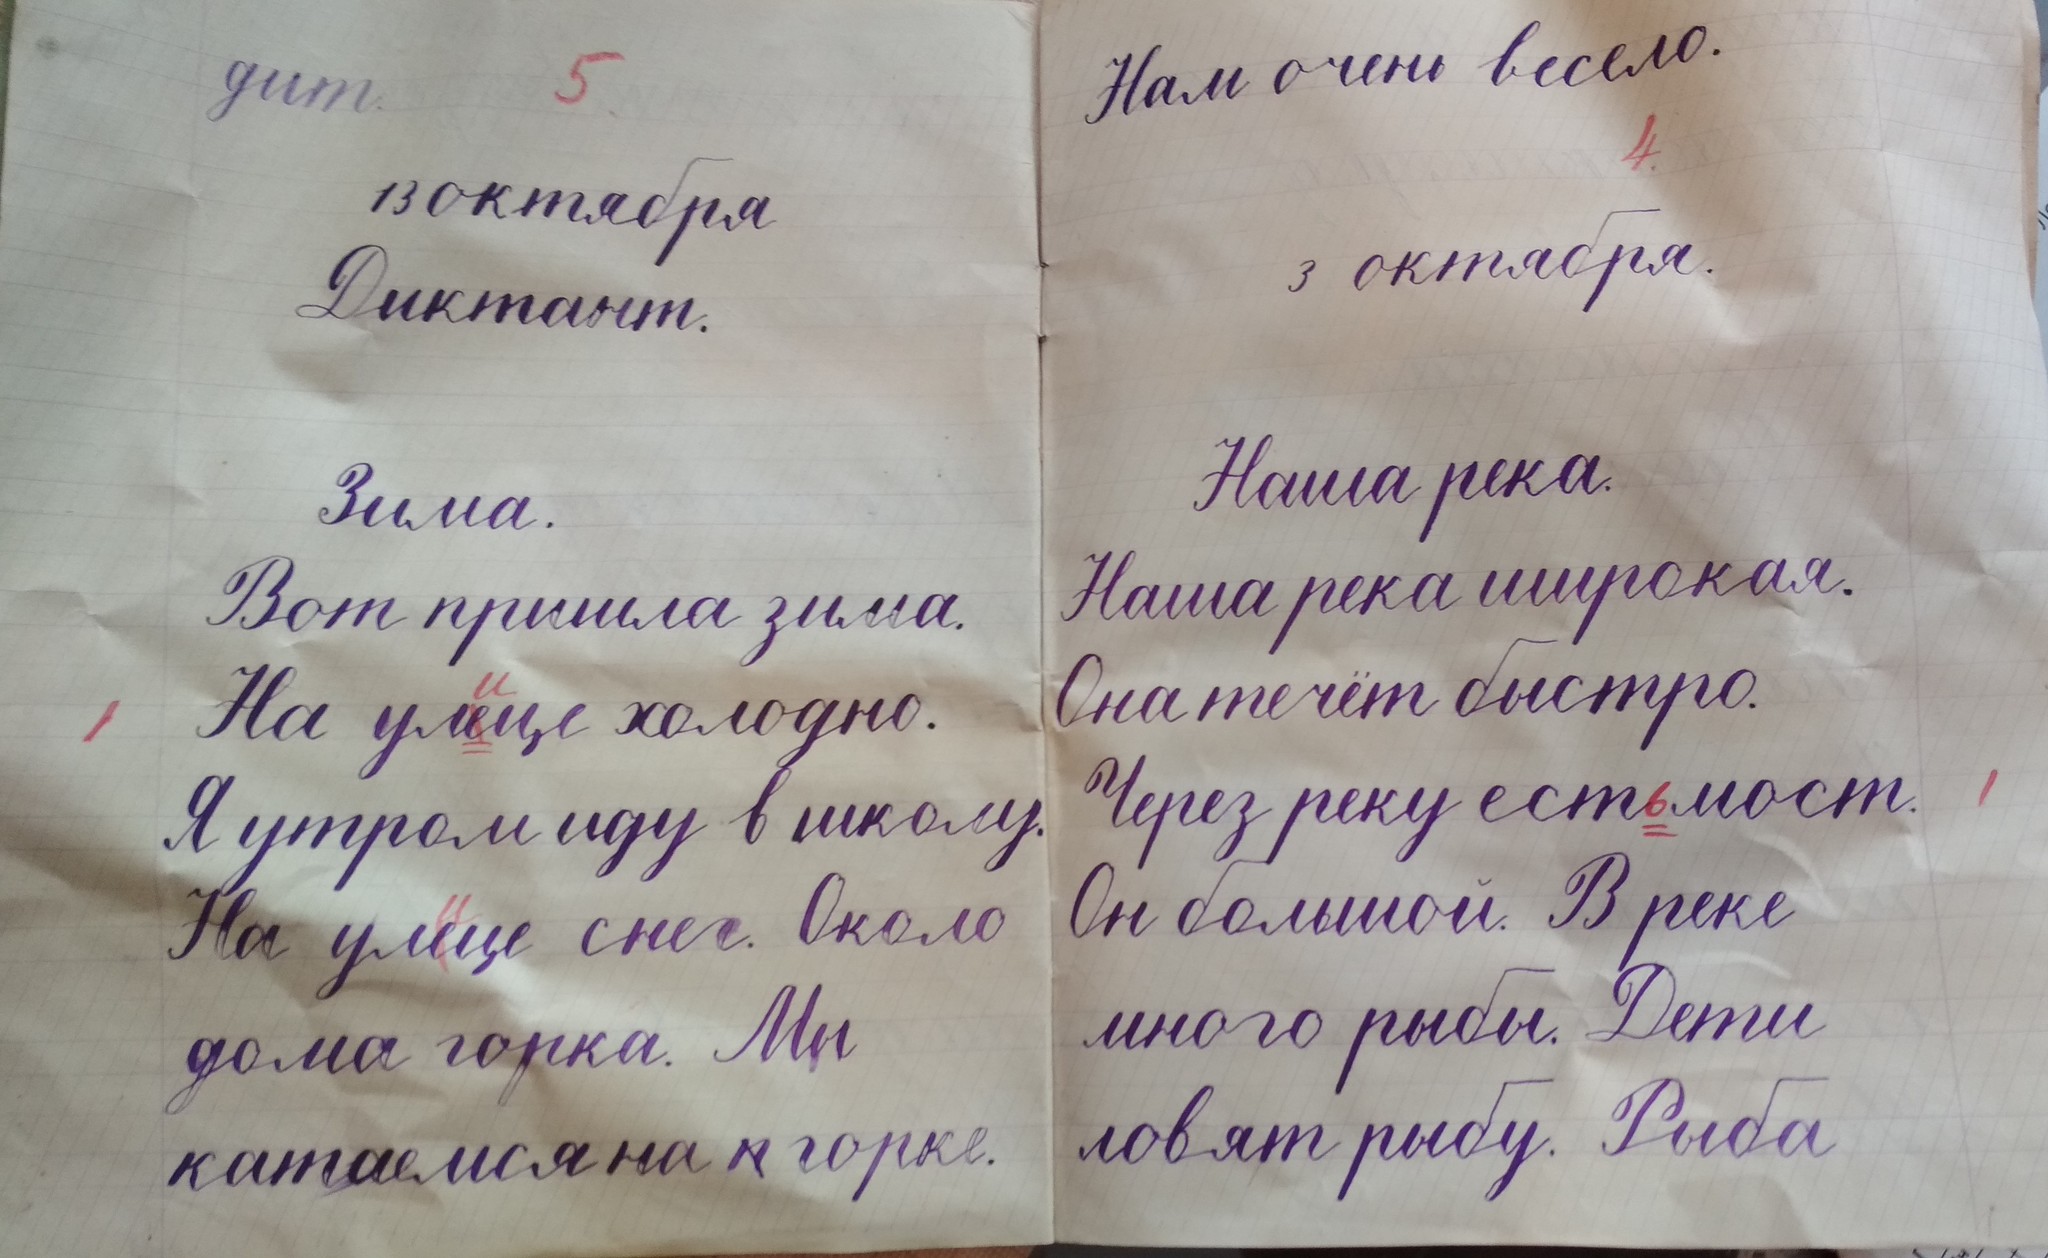 дит. 5
13 октября
Диктант.
Зима.
Вот пришла зима.
На улеце холодно.
Я утром иду в школу.
На улеце снег. Около
дома горка. Мы
катаемся на горке.
Нам очень весело.
4.
3 октября.
Наша река.
Наша река широкая.
Она течёт быстро.
Через реку есть мост.
Он большой. В реке
много рыбы. Дети
ловят рыбу. Рыба